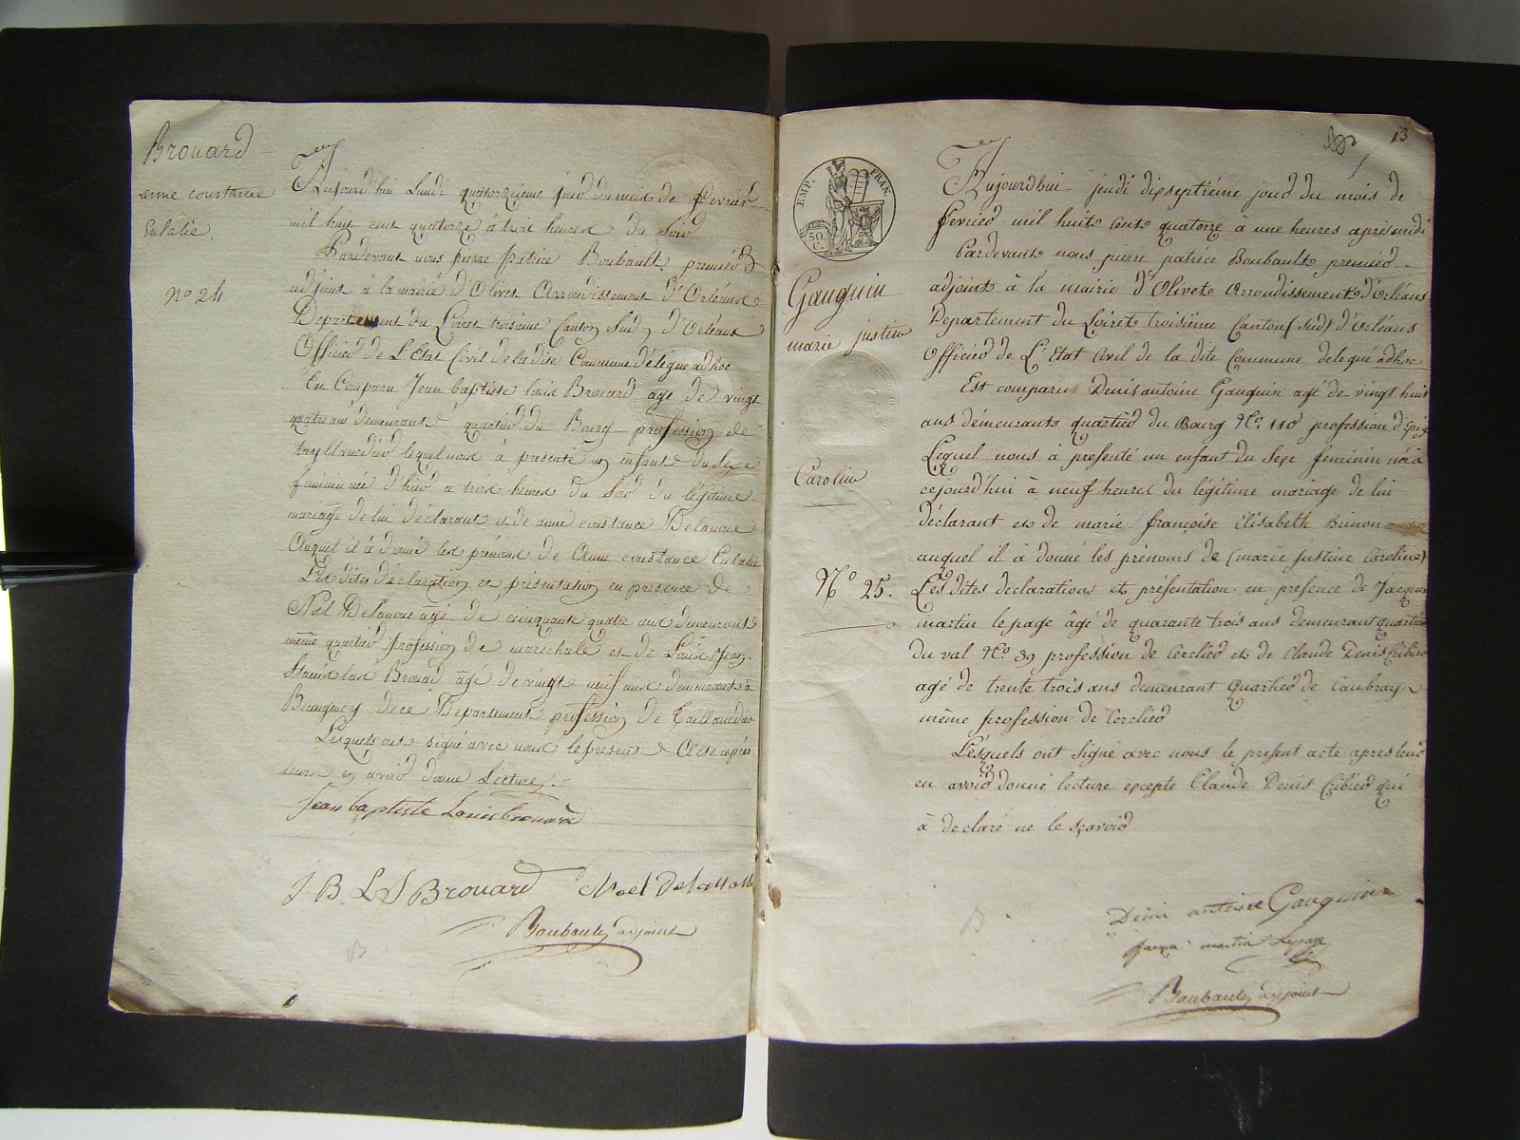 Brouard
anne constance
Eulalie
N° 24
Aujourd'hui Lundi quatorzieme jour du mois de fevrier
mil huit cent quatorze à trois heures du soir
Pardevant nous pierre patrice Boubault premier
adjoint à la mairie d'Olivet Arrondissement d'Orléans
Departement du Loiret troisieme Canton Sud d'Orléans
Officier de L'Etat Civil de la dite Commune délégué adhoc
Est Comparu Jean baptiste Louis Brouard agé de vingt
quatre ans demeurant quartier du Bourg profession de
taillandier lequel nous à presenté un enfant du sexe
feminin née d'hier a trois heures du soir du légitime
mariage de lui déclarant et de anne constance Delanoue
Auquel il à donné les prénoms de Anne constance Eulalie
Les dites déclaration et présentation en presence de
Noël Delanoue âgé de cinquante quatre ans demeurant
même quartier profession de maréchale et de Louis Jean
Brouard âgé de vingt neuf ans demeurant à
Beaugency de ce Departement profession de Taillandier
Lesquels ont signé avec nous le present acte après
leur en avoir donné Lecture
Jean baptiste Louis brouard
J B L S Brouard Noël Delanoue
Boubault adjoint
13
EMP. FRAN.
50 C.
Gauguin
marie justine
Caroline
N° 25.
Aujourdhui jeudi dixseptième jour du mois de
fevrier mil huit cent quatorze à une heures après midi
Pardevant nous pierre patrice Boubault premier
adjoint à la mairie d'Olivet Arrondissement d'Orléans
Departement du Loiret troisième Canton (Sud) d'Orléans
Officier de L'Etat Civil de la dite Commune delegué adhoc
Est comparu Denis antoine Gauguin agé de vingt huit
ans demeurant quartier du Bourg N° 110 profession d'
Lequel nous à presenté un enfant du sexe feminin né à
cejourd'hui à neuf heures du légitime mariage de lui
déclarant et de marie françoise Elisabeth Bimon
auquel il à donné les prénoms de (marie justine Caroline)
Les dites declaration et présentation en presence de Jacques
martin lepage âgé de quarante trois ans demeurant quartier
du val N° 39 profession de Cerclier et de Claude Denis Cribier
agé de trente trois ans demeurant quartier de Caubray
même profession de Cerclier
Lésquels ont signé avec nous le present acte apres leur
en avoir donné lecture excepté Claude Denis Cribier qui
à declaré ne le sçavoir
Deni antoine Gauguin
martin Lepage
Boubault adjoint